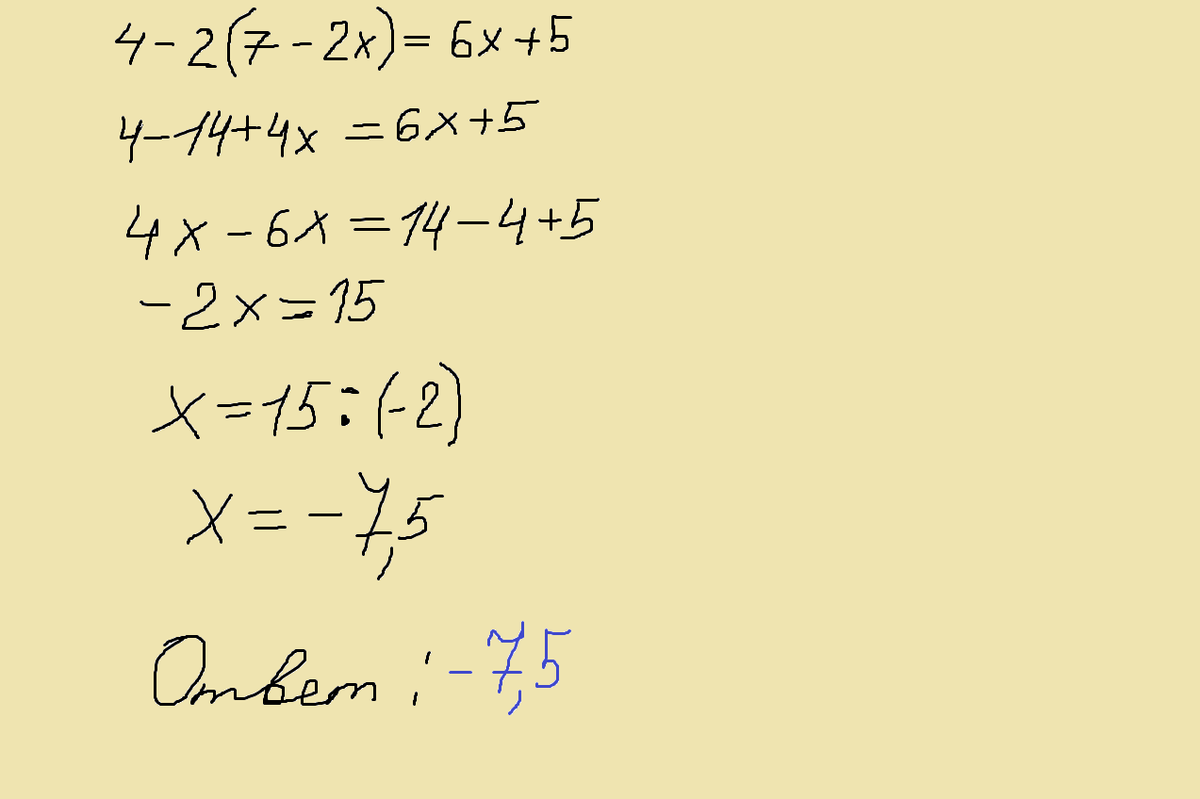 4-2(7-2x)=6x+5
4-14+4x=6x+5
4x-6x=14-4+5
-2x=15
x=15:(-2)
x=-7,5
Ответ: -7,5